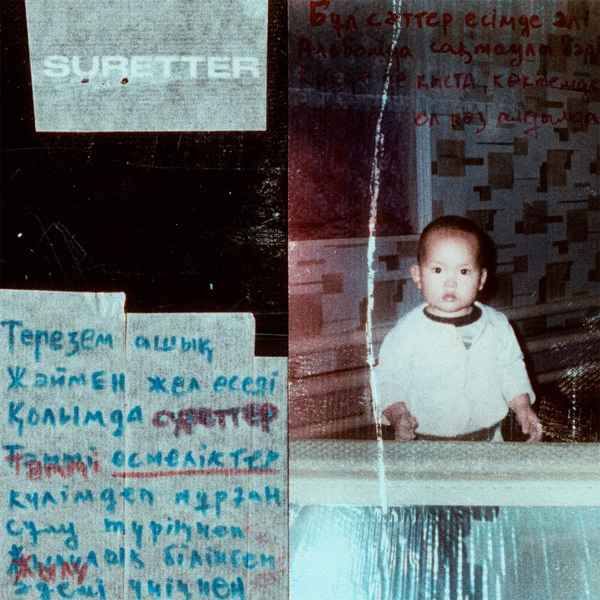 SURETTER
Бұл сәттер есімде әлі
Альбомда сақтаулы бәрі
қыста, көктемде
ол кез
Терезем ашық
Жәймен жел еседі
Қолымда суреттер
Тәтті естеліктер
күлімдеп тұрған
сұлу түріңнен
Жылу
білінген
әдемі үніңнен